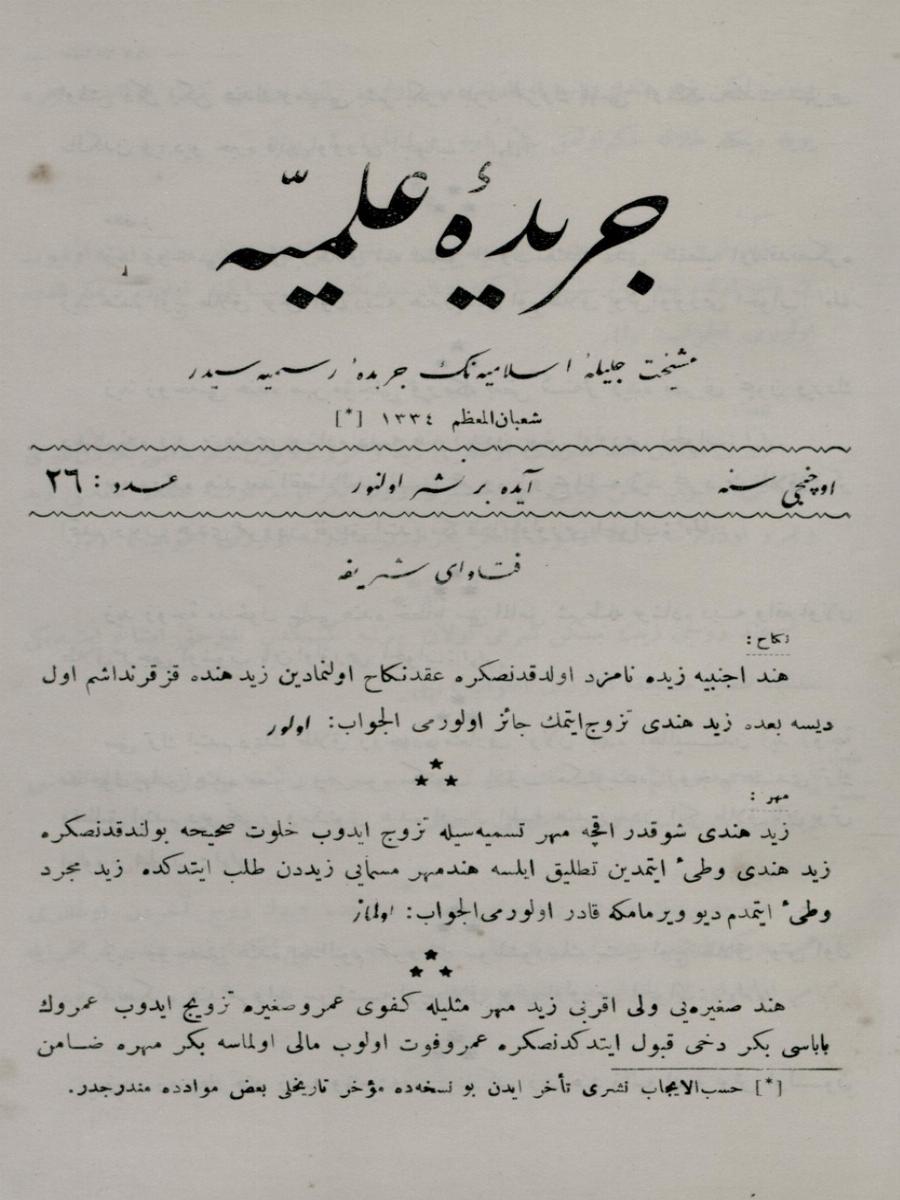 جريدۀ علميّه
مشيخت جليلۀ اسلاميه‌نك جريدۀ رسميه‌سيدر
شعبان‌المعظم ١٣٣٤ [*]
اوچنجى سنه آيده بر نشر اولنور عدد : ٢٦
فتاواى شريفه
نكاح :
هند اجنبيه زيده نامزد اولدقدنصكره عقدنكاح اولنمادين زيد هنده قزقرنداشم اول
ديسه بعده زيد هندى تزوج‌ايتمك جائز اولورمى الجواب : اولور
مهر :
زيد هندى شوقدر اقچه مهر تسميه‌سيله تزوج ايدوب خلوت صحيحه بولندقدنصكره
زيد هندى وطىء ايتمدين تطليق ايلسه هندمهر مسمايى زيددن طلب ايتدكده زيد مجرد
وطىء ايتمدم ديو ويرمامكه قادر اولورمى‌الجواب : اولماز
هند صغيره‌يى ولى اقربى زيد مهر مثليله كفوى عمروصغيره تزويج ايدوب عمروك
باباسى بكر دخى قبول ايتدكدنصكره عمروفوت اولوب مالى اولماسه بكر مهره ضامن
[*] حسب‌الايجاب نشرى تأخر ايدن بو نسخه‌ده مؤخر تاريخلى بعض موادده مندرجدر.